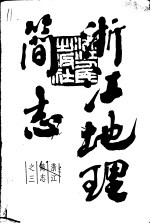 浙江地理
简志
浙江
简志
之三